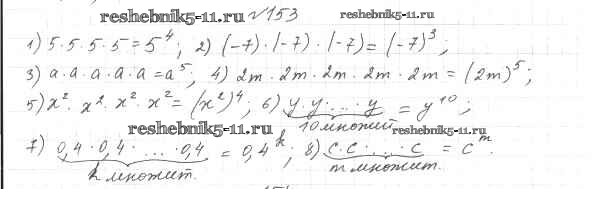 reshebnik5-11.ru №153 reshebnik5-11.ru
1) 5·5·5·5=5⁴; 2) (-7)·(-7)·(-7)=(-7)³;
3) a·a·a·a·a=a⁵; 4) 2m·2m·2m·2m·2m=(2m)⁵;
5) x²·x²·x²·x²=(x²)⁴; 6) y·y·...·y=y¹⁰;
10 множит.
reshebnik5-11.ru reshebnik5-11.ru
7) 0,4·0,4·...·0,4=0,4ᵏ; 8) c·c·...·c=cᵐ.
k множит. m множит.